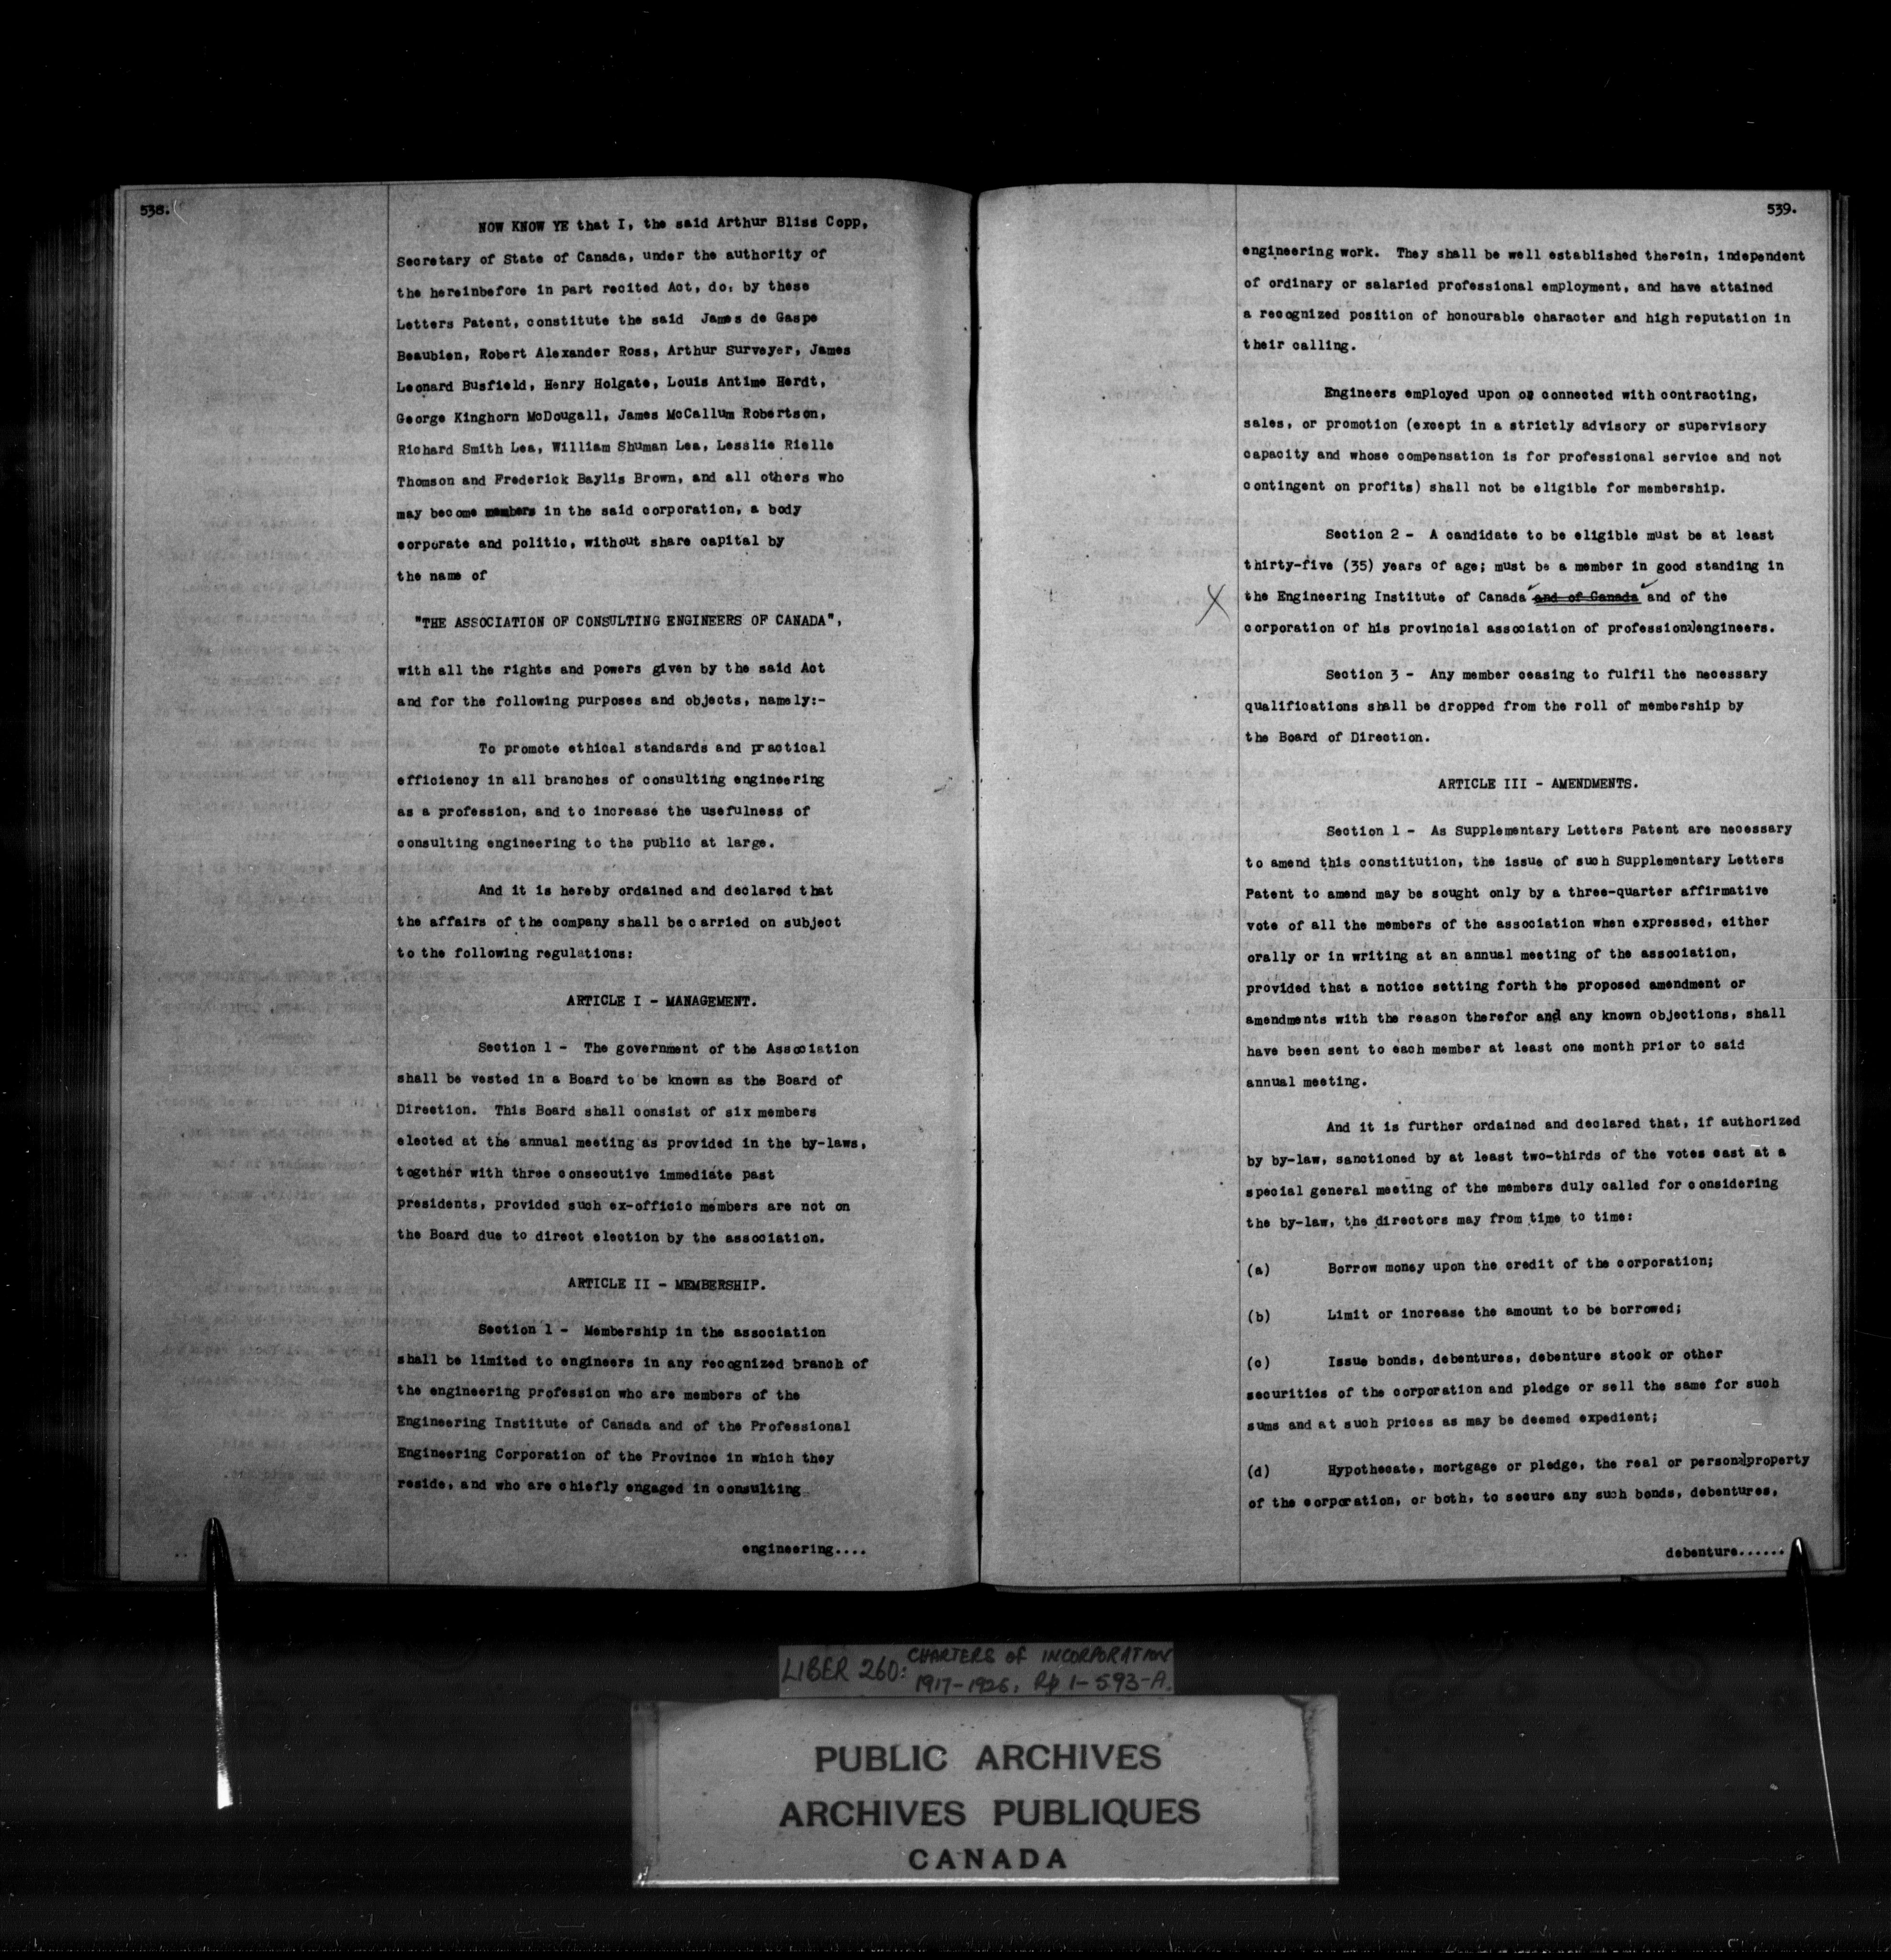 538.
NOW KNOW YE that I, the said Arthur Bliss Copp,
Secretary of State of Canada, under the authority of
the hereinbefore in part recited Act, do, by these
Letters Patent, constitute the said James de Gaspe
Beaubien, Robert Alexander Ross, Arthur Surveyer, James
Leonard Busfield, Henry Holgate, Louis Antime Herdt,
George Kinghorn McDougall, James McCallum Robertson,
Richard Smith Lea, William Shuman Lea, Lesslie Rielle
Thomson and Frederick Baylis Brown, and all others who
may become members in the said corporation, a body
corporate and politic, without share capital by
the name of
"THE ASSOCIATION OF CONSULTING ENGINEERS OF CANADA",
with all the rights and powers given by the said Act
and for the following purposes and objects, namely:-
To promote ethical standards and practical
efficiency in all branches of consulting engineering
as a profession, and to increase the usefulness of
consulting engineering to the public at large.
And it is hereby ordained and declared that
the affairs of the company shall be carried on subject
to the following regulations:
ARTICLE I - MANAGEMENT.
Section 1 - The government of the Association
shall be vested in a Board to be known as the Board of
Direction. This Board shall consist of six members
elected at the annual meeting as provided in the by-laws,
together with three consecutive immediate past
presidents, provided such ex-officio members are not on
the Board due to direct election by the association.
ARTICLE II - MEMBERSHIP.
Section 1 - Membership in the association
shall be limited to engineers in any recognized branch of
the engineering profession who are members of the
Engineering Institute of Canada and of the Professional
Engineering Corporation of the Province in which they
reside, and who are chiefly engaged in consulting
engineering....
539.
engineering work. They shall be well established therein, independent
of ordinary or salaried professional employment, and have attained
a recognized position of honourable character and high reputation in
their calling.
Engineers employed upon or connected with contracting,
sales, or promotion (except in a strictly advisory or supervisory
capacity and whose compensation is for professional service and not
contingent on profits) shall not be eligible for membership.
Section 2 - A candidate to be eligible must be at least
thirty-five (35) years of age; must be a member in good standing in
X the Engineering Institute of Canada and of Canada and of the
corporation of his provincial association of professional engineers.
Section 3 - Any member ceasing to fulfil the necessary
qualifications shall be dropped from the roll of membership by
the Board of Direction.
ARTICLE III - AMENDMENTS.
Section 1 - As Supplementary Letters Patent are necessary
to amend this constitution, the issue of such Supplementary Letters
Patent to amend may be sought only by a three-quarter affirmative
vote of all the members of the association when expressed, either
orally or in writing at an annual meeting of the association,
provided that a notice setting forth the proposed amendment or
amendments with the reason therefor and any known objections, shall
have been sent to each member at least one month prior to said
annual meeting.
And it is further ordained and declared that, if authorized
by by-law, sanctioned by at least two-thirds of the votes cast at a
special general meeting of the members duly called for considering
the by-law, the directors may from time to time:
(a) Borrow money upon the credit of the corporation;
(b) Limit or increase the amount to be borrowed;
(c) Issue bonds, debentures, debenture stock or other
securities of the corporation and pledge or sell the same for such
sums and at such prices as may be deemed expedient;
(d) Hypothecate, mortgage or pledge, the real or personal property
of the corporation, or both, to secure any such bonds, debentures,
debenture......
LIBER 260: CHARTERS of INCORPORATION
1917-1926, Rp 1-593-A.
PUBLIC ARCHIVES
ARCHIVES PUBLIQUES
CANADA